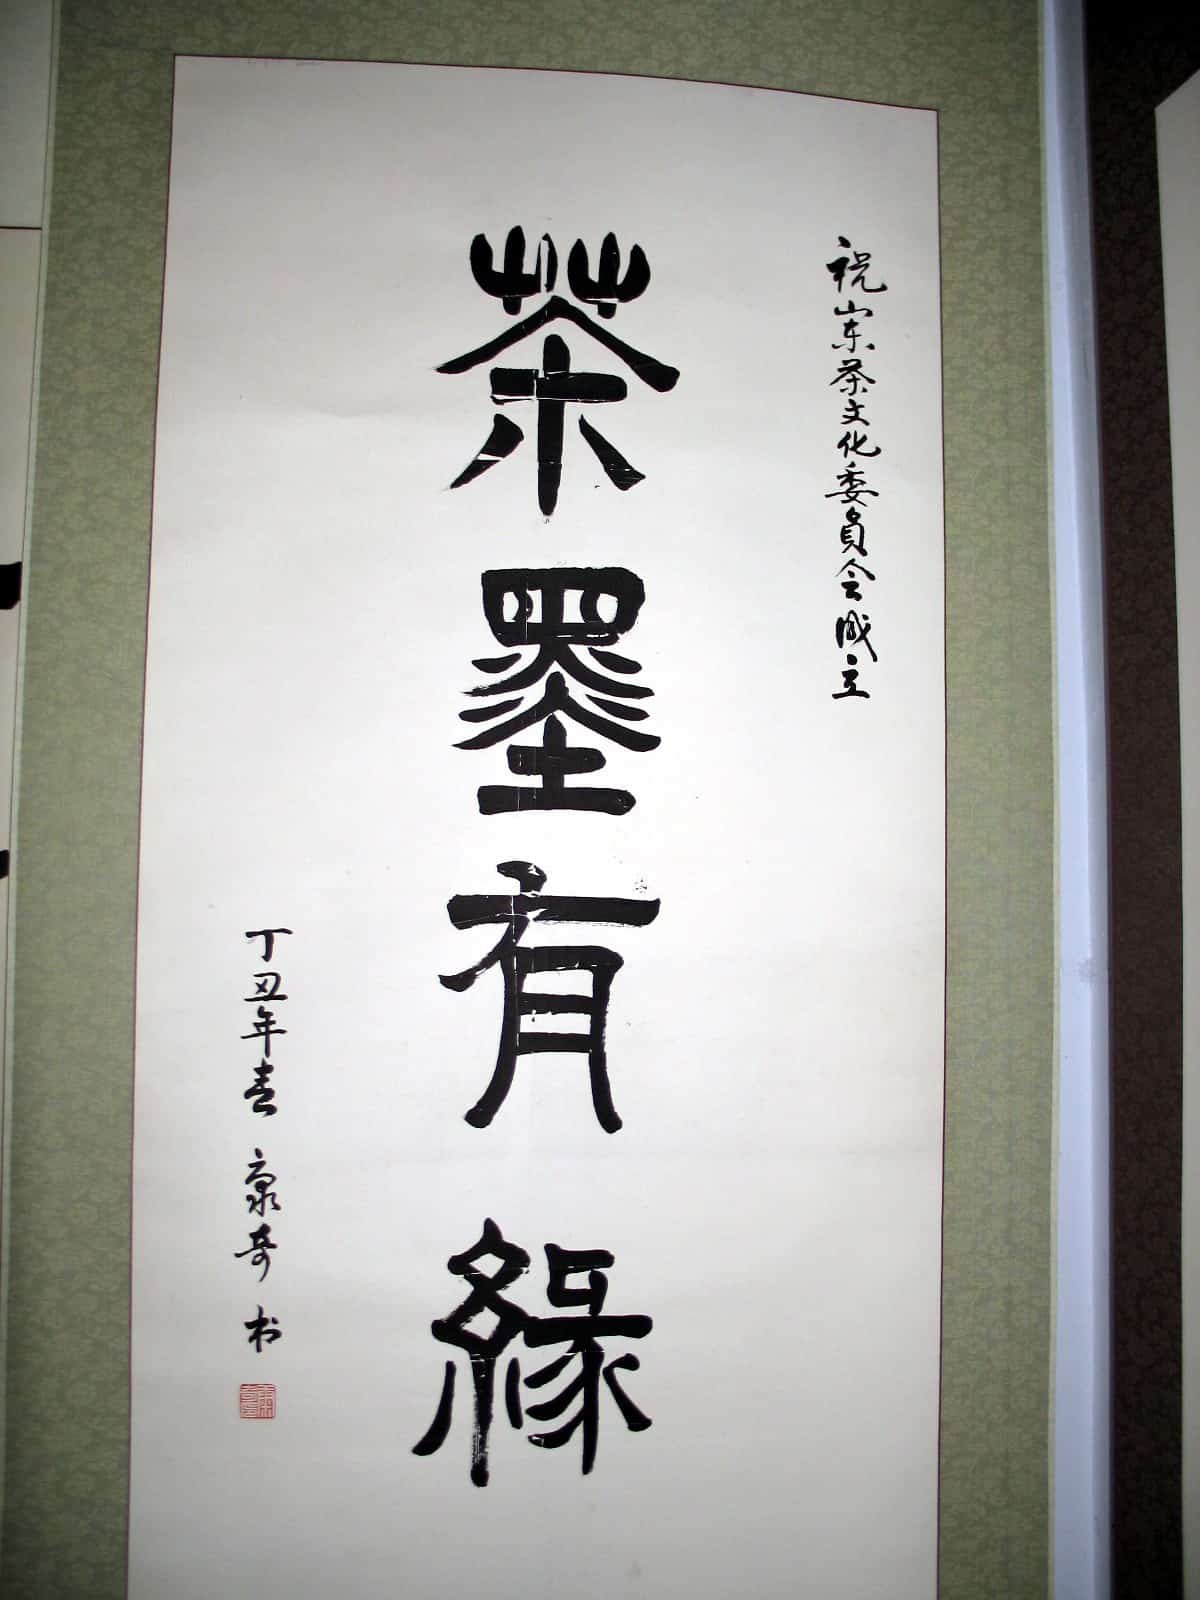 祝山东茶文化委员会成立
茶墨有緣
丁丑年春 康奇 书